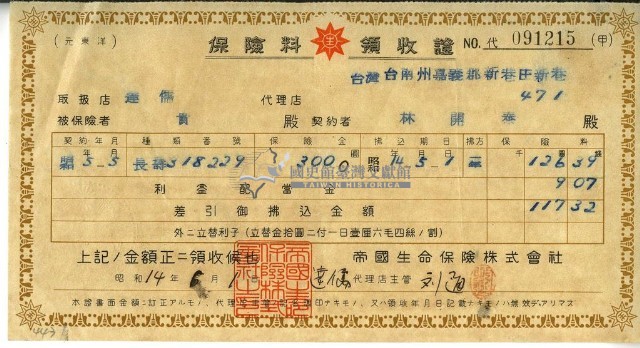 (元東洋) 保險料 領收證 NO.代 091215 (甲)
台灣 台南州嘉義郡新巷庄新巷
471
取扱店 達儒 代理店
被保險者 實 殿 契約者 林開泰 殿
契約年月 種類番號 保險金 拂込期日 拂方 保險料
昭5-5 長壽318229 3000 昭14 5 1 12639
利益配當金 907
差引御拂込金額 11732
國史館臺灣文獻館
TAIWAN HISTORICA
外ニ立替利子(立替金拾圓ニ付一日壹厘六毛四絲ノ割)
上記ノ金額正ニ領收候也 帝國生命保險株式會社
昭和14年6月1日 達儒 代理店主管
本證書面金額ニ訂正アルモノ、代理店主管
又ハ領收年月日記載ナキモノハ無效デアリマス